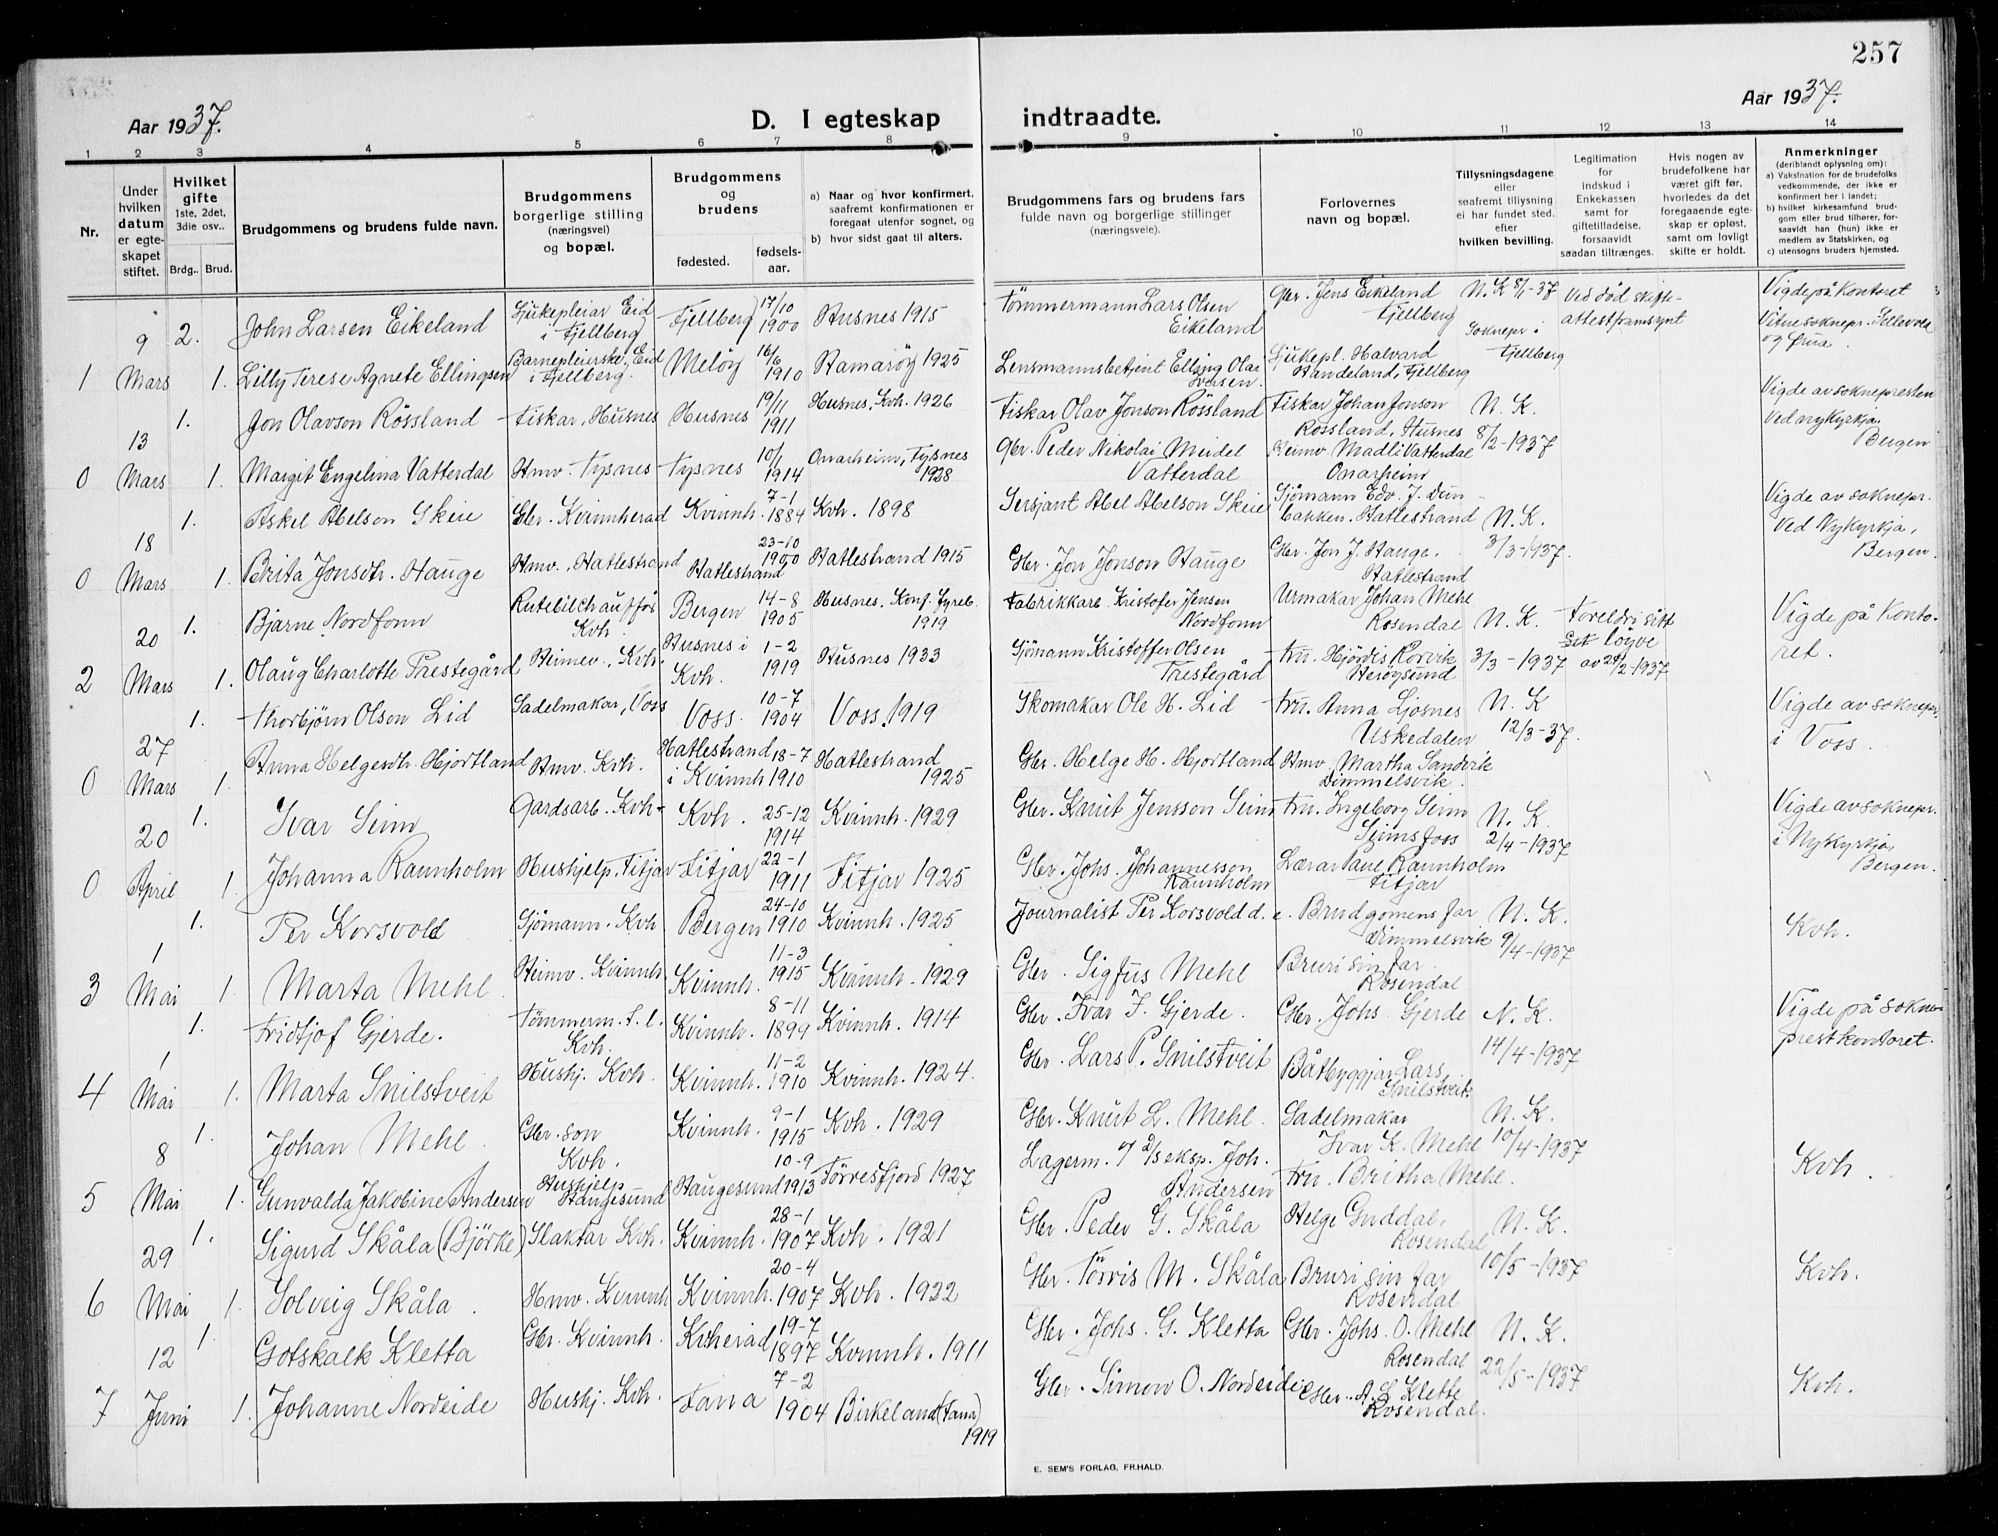 257
Aar 1937.
D. I egteskap indtraadte.
Aar 1937.
1 2 3 4 5 6 7 8 9 10 11 12 13 14
Nr.
Under hvilken datum er egteskapet stiftet.
Hvilket gifte 1ste, 2det, 3die osv..
Brdg.. Brud.
Brudgommens og brudens fulde navn.
Brudgommens borgerlige stilling (næringsvei) og bopæl.
Brudgommens og brudens
fødested. fødsels-aar.
a) Naar og hvor konfirmert, saafremt konfirmationen er foregaat utenfor sognet, og
b) hvor sidst gaat til alters.
Brudgommens fars og brudens fars fulde navn og borgerlige stillinger (næringsveie).
Forlovernes navn og bopæl.
Tillysningsdagene eller saafremt tillysning ei har fundet sted. efter hvilken bevilling.
Legitimation for indskud i Enkekassen samt for giftetilladelse, forsaavidt saadan tiltrænges.
Hvis nogen av brudefolkene har været gift før, hvorledes da det foregaaende egteskap er opløst, samt om lovligt skifte er holdt.
Anmerkninger (deriblandt oplysning om):
a) Vaksination for de brudefolks vedkommende, der ikke er konfirmert her i landet;
b) hvilket kirkesamfund brudgom eller brud tilhører, forsaavidt han (hun) ikke er medlem av Statskirken, og
c) utensogns bruders hjemsted.
1 9 Mars 2. John Larsen Eikeland Sjukepleiar Eid i Fjellberg Fjellberg 17/10 1900 Husnes 1915 Tømmermann Lars Olsen Eikeland Gbr. Jens Eikeland Fjellberg N. K 8/1-37 Ved død skifteattest framsynt Vigde på Kontoret
1. Lilly Terese Agnete Ellingsen Barnepleierske, Eid i Fjellberg. Meløy 16/6 1910 Hamarøy 1925 Lensmannsbetjent Elling Olai Ivarsen. Sjukepl. Halvard Handeland, Fjellberg Soknepr i Fjellberg Vitne soknepr. Sellevold og Frua.
0 13 Mars 1. Jon Olavson Røssland Fiskar, Husnes Husnes 19/11 1911 Husnes, Kvh. 1926 Fiskar Olav Jonson Røssland Fiskar Johan Jonson Røssland, Husnes N. K. 8/2-1937 Vigde av soknepresten
1. Margit Engelina Vatterdal Hmv. Tysnes Tysnes 10/1 1914 Onarheim, Tysnes 1928 Gbr. Peder Nikolai Meidel Vatterdal Heimv. Madli Vatterdal Onarheim Ved nykyrkja Bergen
0 18 Mars 1. Askel Abelson Skeie Gbr. Kvinnherad Kvinnh. 7-1 1884 Kvh. 1898 Sersjant Abel Abelson Skeie Sjømann Edv. J. Dunbakken. Hatlestrand N. K. 3/3-1937. Vigde av soknepr. ved Nykyrkja, Bergen.
1. Brita Jonsdtr. Hauge Hmv., Hatlestrand Hatlestrand 23-10 1900 Hatlestrand 1915 Gbr. Jon Jonson Hauge Gbr. Jon J. Hauge. Hatlestrand
2 20 Mars 1. Bjarne Nordfonn Rutebilchauffør Kvh. Bergen 14-8 1905 Husnes. Konf. Fyreb. 1919 Fabrikkarb. Kristofer Jensen Nordfonn Urmakar Johan Mehl Rosendal N. K. 3/3-1937 Foreldri sitt løyve av 24/2-1937 Vigde på Kontoret.
1. Olaug Charlotte Prestegård Heimev., Kvh. Husnes i Kvh. 1-2 1919 Husnes 1933 Sjømann Kristoffer Olsen Prestegård Fru. Hjørdis Rorvik Herøysund
0 27 Mars 1. Thorbjørn Olsen Lid Sadelmakar, Voss Voss. 10-7 1904 Voss. 1919 Skomakar Ole H. Lid Fru. Anna Ljosnes Uskedalen N. K 12/3-37. Vigde av soknepr. i Voss.
1. Anna Helgesdtr. Hjortland Hmv. Kvh. Hatlestrand i Kvinnh 18-7 1910 Hatlestrand 1925 Gbr. Helge H. Hjortland Hmv. Martha Sandvik Dimmelsvik.
0 20 April 1. Ivar Seim Gardsarb. Kvh. Kvh. 25-12 1914 Kvinnh. 1929 Gbr. Knut Jensson Seim Fru. Ingeborg Seim Seimsfoss N. K. 2/4-1937 Vigde av soknepr. i Nykyrkja, Bergen.
1. Johanna Raunholm Hushjelp, Fitjar Fitjar 22-1 1911 Fitjar 1925 Gbr. Johs. Johannessen Raunholm Lærar Paul Raunholm Fitjar
3 1 Mai 1. Per Korsvold Sjømann. Kvh Bergen 24-10 1910 Kvinnh. 1925 Journalist Per Korsvold d. e. Brudgomens far Dimmelsvik N. K. 9/4-1937 Kvh.
1. Marta Mehl Heimv. Kvinnh. Kvinnh. 11-3 1915 Kvinnh. 1929 Gbr. Sigfus Mehl Bruri sin far Rosendal
4 1 Mai 1. Fridtjof Gjerde. Tømmerm. f. l. Kvh. Kvinnh. 8-11 1899 Kvinnh. 1914 Gbr. Ivar F. Gjerde. Gbr. Johs. Gjerde N. K. 14/4-1937 Vigde på sokneprestkontoret.
1. Marta Snilstveit Hushj. Kvh. Kvinnh. 11-2 1910 Kvinnh. 1924. Gbr. Lars P. Snilstveit Båtbyggjar Lars Snilstveit
5 8 Mai 1. Johan Mehl. Gbr. son Kvh. Kvinnh. 9-1 1915 Kvh. 1929 Gbr. Knut L. Mehl. Sadelmakar Ivar K. Mehl N. K. 10/4-1937 Kvh.
1. Gunvalda Jakobine Andersen Hushjelp Haugesund Haugesund 10-9 1913 Førresfjord 1927 Lagerm. Joh. Andersen Fru. Britha Mehl.
6 29 Mai 1. Sigurd Skåla (Bjørke) Slaktar Kvh. Kvinnh. 28-1 1907 Kvh. 1921 Gbr. Peder G. Skåla Helge Guddal, Rosendal N. K. 10/5-1937 Kvh.
1. Solveig Skåla. Hmv. Kvinnh Kvinnh. 20-4 1907 Kvh. 1922 Gbr. Tørris M. Skåla Bruri sin far Rosendal
7 12 Juni 1. Gotskalk Kletta Gbr. Kvinnh. Kvherad 19-7 1897 Kvinnh. 1911 Gbr. Johs. G. Kletta Gbr. Johs. O. Mehl Rosendal N. K. 22/5-1937 Kvh.
1. Johanne Nordeide Hushj. Kvh. Fana 7-2 1904 Birkeland (Fana) 1919 Gbr. Simon O. Nordeide Gbr. A. L. Klette Rosendal.
E. SEM'S FORLAG, FR.HALD.